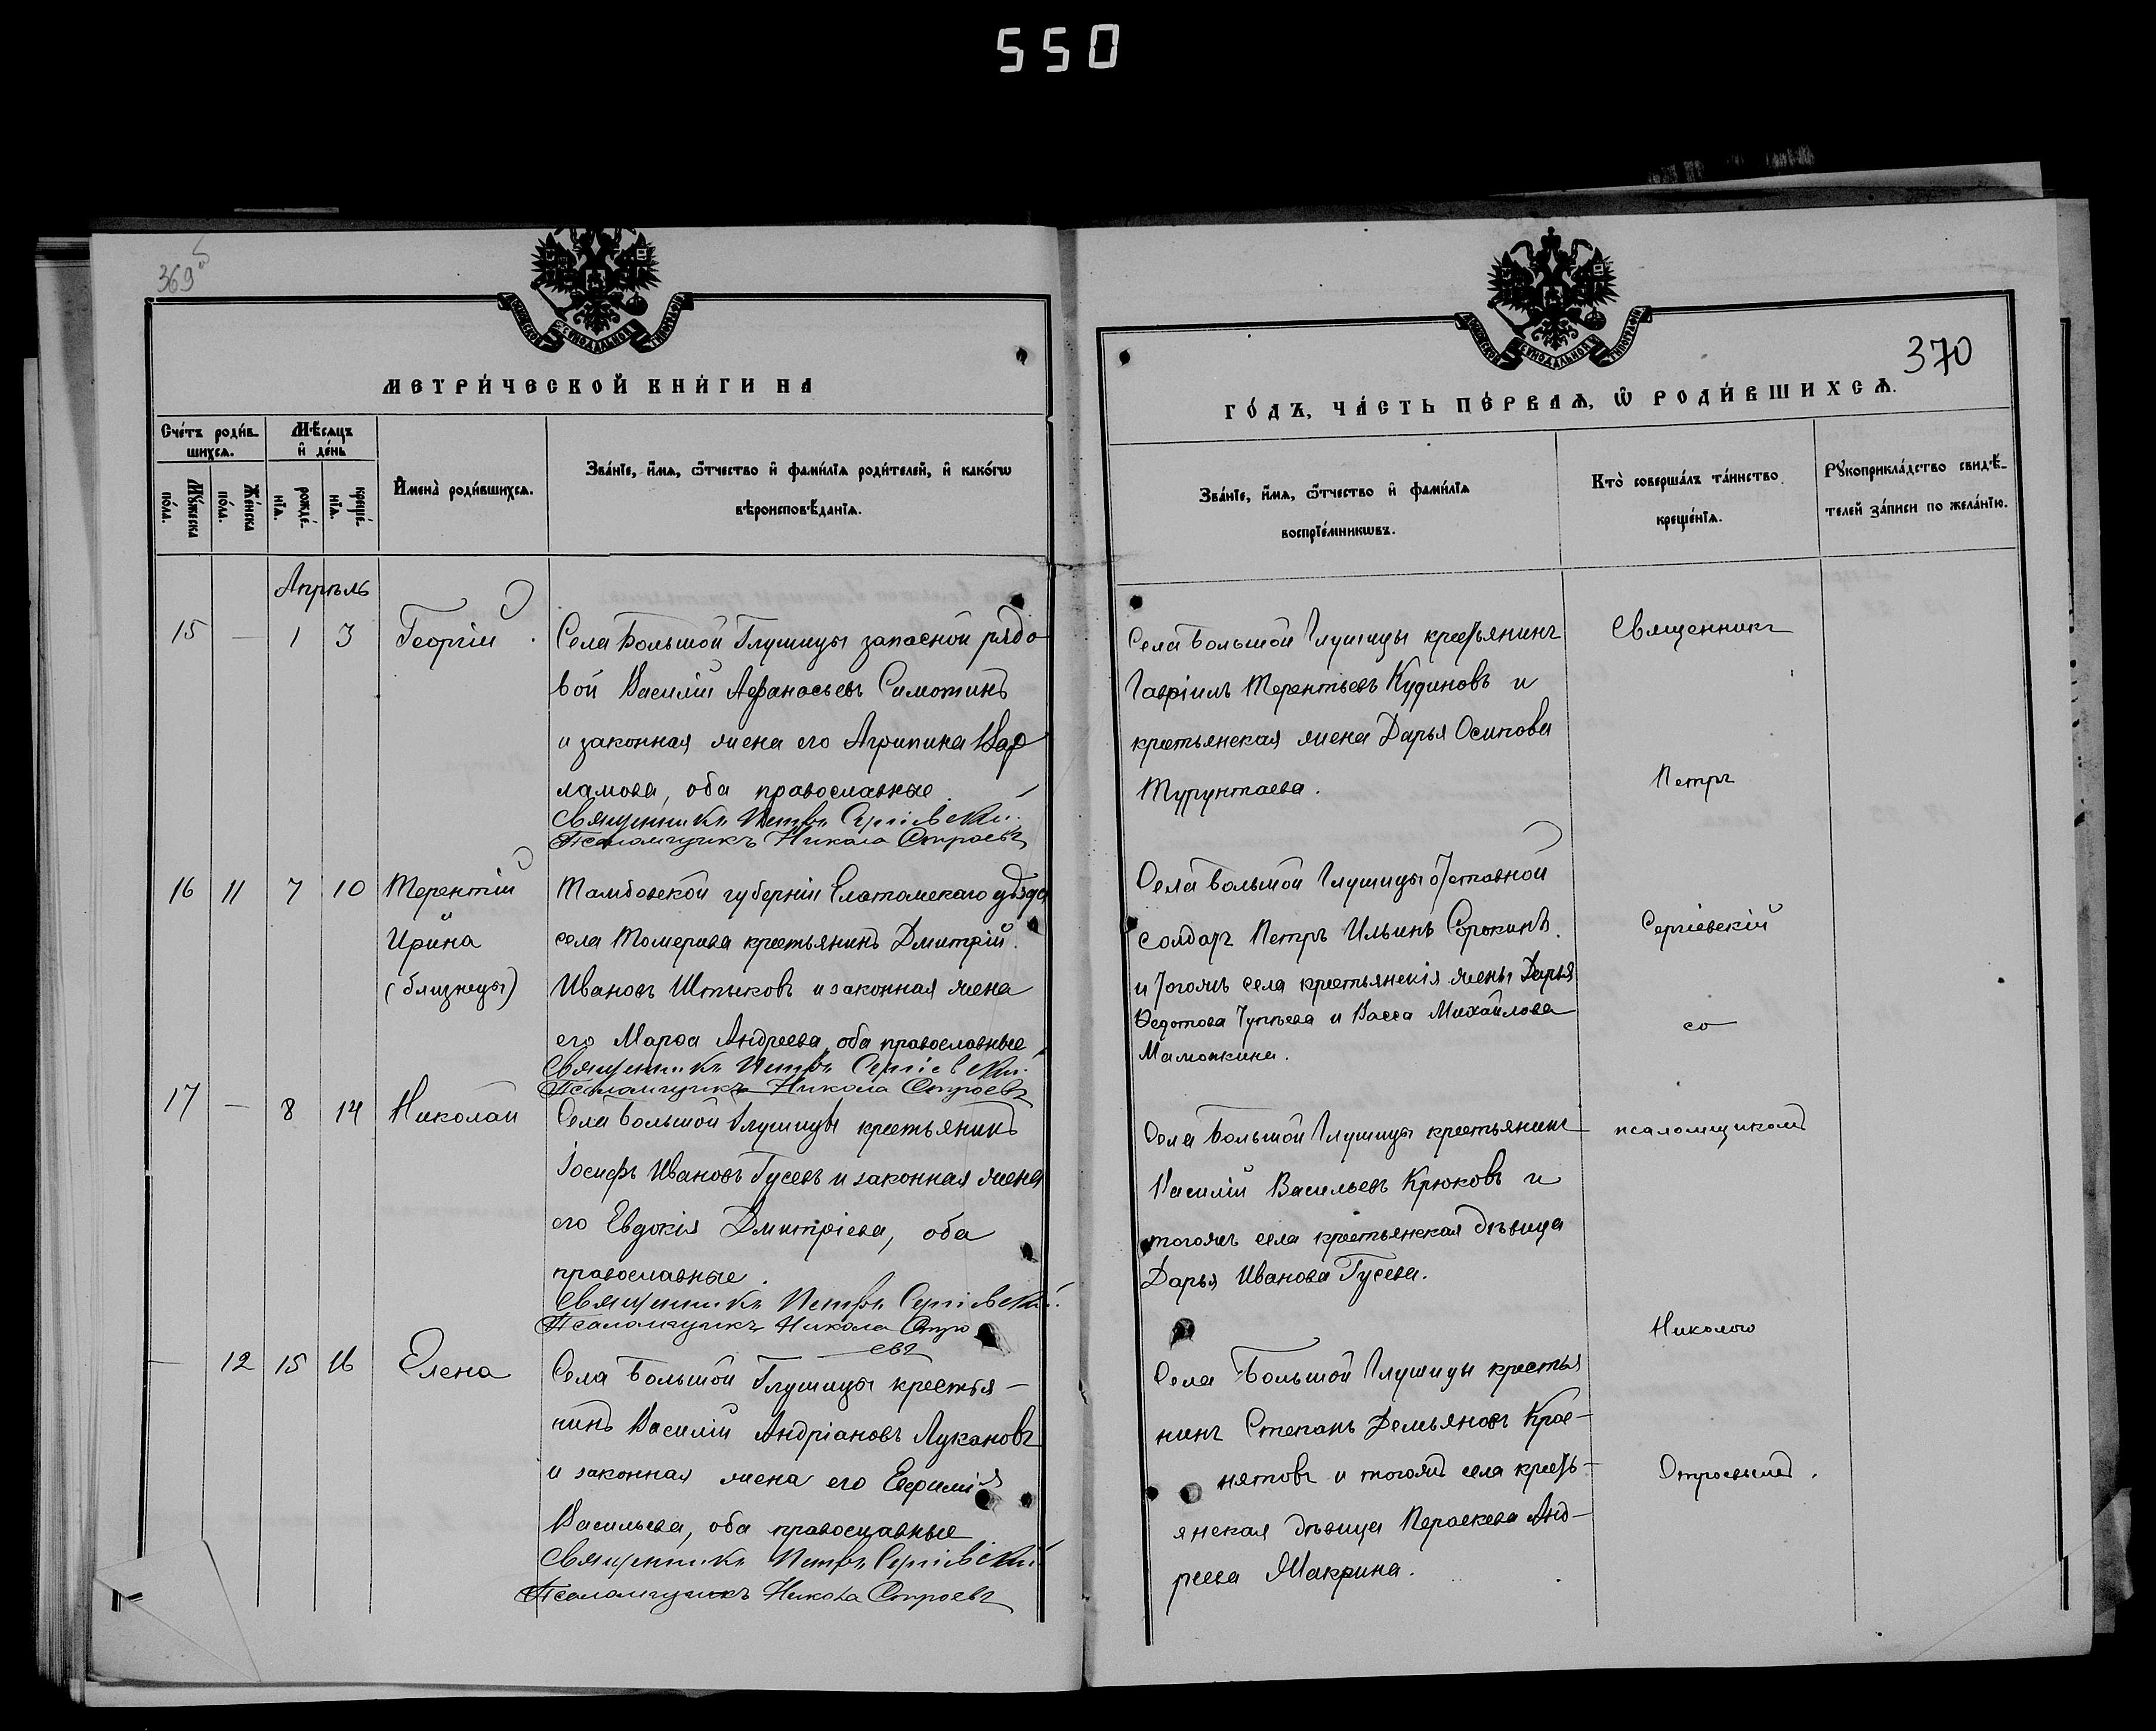 550
369об
МЕТРИ́ЧЕСКОЙ КНИ́ГИ НА
Сче́тъ роди́в-
шихсѧ.
Мѣ́сѧцъ
и҆ де́нь
Мꙋ́жеска
по́ла.
Же́нска
по́ла.
рожде́-
нїѧ.
креще́-
нїѧ.
И҆мена̀ роди́вшихсѧ.
Зва́нїе, и҆́мѧ, ѻ҆́тчество и҆ фами́лїѧ роди́телей, и҆ како́гѡ
вѣроисповѣ́данїѧ.
Апрѣль
15 — 1 3 Георгій
Села Большой Глушицы запасной рядо
вой Василій Аѳанасьевъ Симотинъ
и законная жена его Агрипина Вар
ламова, оба православные
Священникъ Петръ Сергіевскій.
Псаломщикъ Никола Строевъ
16 11 7 10 Терентій
Ирина
(близнецы)
Тамбовской губерніи Елатомскаго уѣзда
села крестьянинъ Дмитрій
Ивановъ Штыковъ и законная жена
его Марѳа Андреева, оба православные
Священникъ Петръ Сергіевскій.
Псаломщикъ Никола Строевъ
17 — 8 14 Николай
Села Большой Глушицы крестьянинъ
Іосифъ Ивановъ Гусевъ и законная жена
его Евдокія Дмитріева, оба
православные.
Священникъ Петръ Сергіевскій.
Псаломщикъ Никола Стро
евъ
— 12 15 16 Елена
Села Большой Глушицы крестья-
нинъ Василій Андріановъ Лукановъ
и законная жена его Евфимія
Васильева, оба православные
Священникъ Петръ Сергіевскій
Псаломщикъ Никола Строевъ
370
ГО́ДЪ, ЧА́СТЬ ПЕ́РВАѦ, Ѡ҆ РОДИ́ВШИХСѦ.
Зва́нїе, и҆́мѧ, ѻ҆́тчество и҆ фами́лїѧ
воспрїе́мникѡвъ.
Кто̀ соверша́лъ та́инство
креще́нїѧ.
Рꙋкоприкла́дство свидѣ́-
телей за́писи по жела́нїю.
Села Большой Глушицы крестьянинъ
Гавріилъ Терентьевъ Кудиновъ и
крестьянская жена Дарья Осипова
Турунтаева.
Села Большой Глушицы отставной
солдатъ Петръ Ильинъ Сорокинъ
и тогожъ села крестьянскія жены Дарья
Ѳедотова и Васса Михайлова
Мамонкина.
Села Большой Глушицы крестьянинъ
Василій Васильевъ Крюковъ и
тогожъ села крестьянская дѣвица
Дарья Иванова Гусева.
Села Большой Глушицы крестья
нинъ Степанъ Демьяновъ Крос-
нятовъ и тогожъ села кресть-
янская дѣвица Параскева Анд-
реева Макрина.
Священникъ
Петръ
Сергіевскій
со
псаломщикомъ
Николою
Строевымъ.